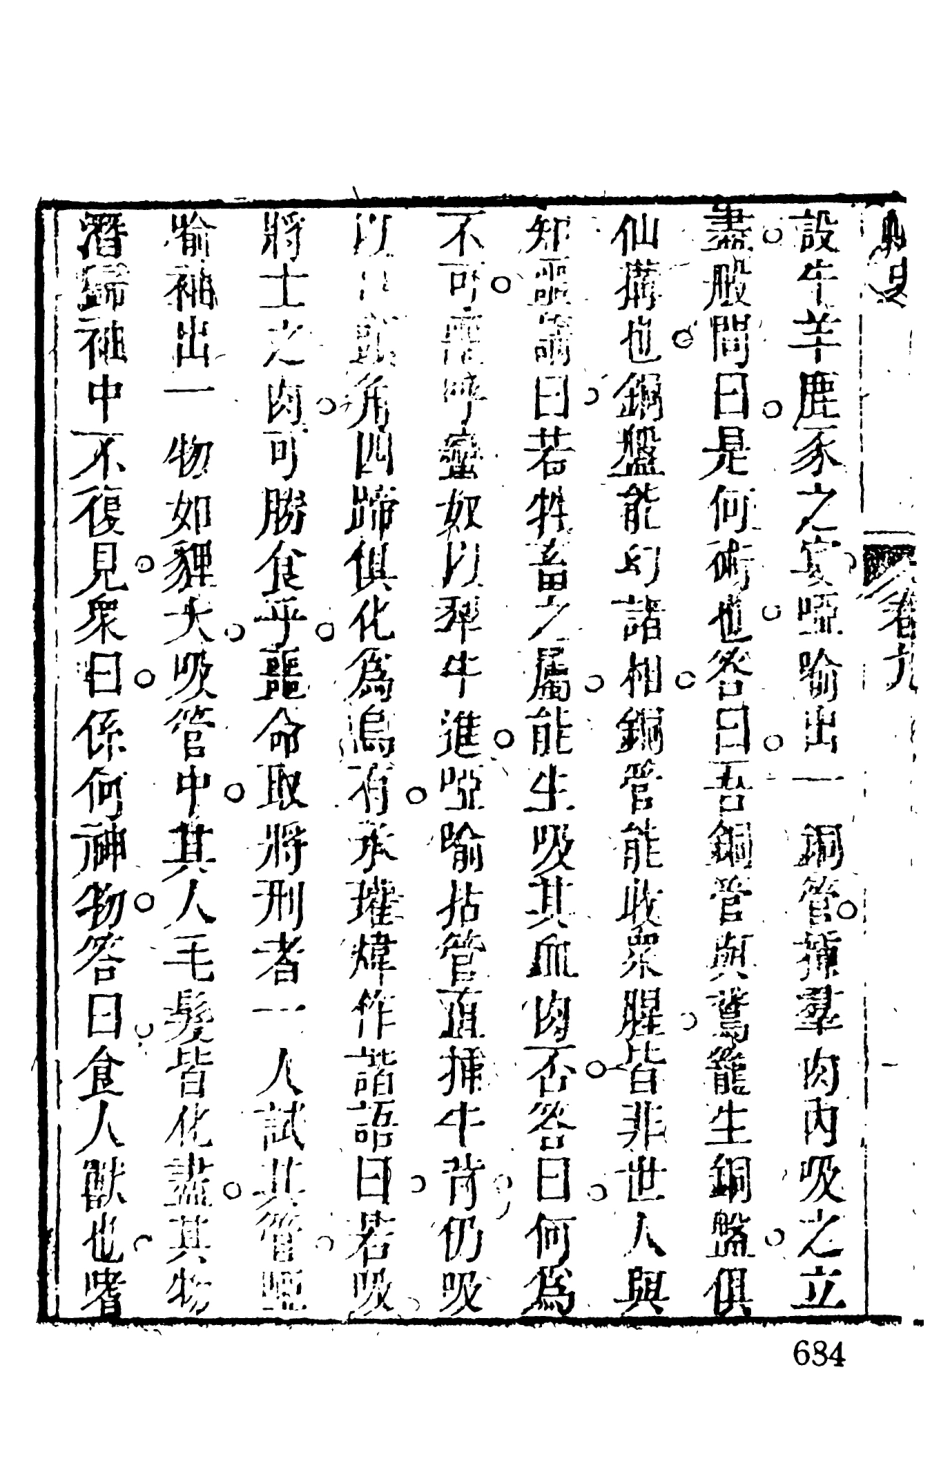 卷九
設牛羊鹿豕之宴啞喻出一銅管。揷羣肉內吸之立
盡。般問曰。是何術也。答曰。吾銅管與鵞籠生銅盤。俱
仙搆也。銅盤能幻諸相。銅管能收衆腥。皆非世人與
知。噩謂曰。若牲畜之屬。能生吸其血肉否。答曰。何爲
不可。噩呼蠻奴以犂牛進。啞喻拈管直揷牛背仍吸
以口頭角四蹄俱化爲烏有。承瓘煒作諧語曰。若吸
將士之肉。可勝食乎。噩命取將刑者一人試其管。啞
喻袖出一物如貍犬。吸管中。其人毛髮皆化盡。其物
潛歸袖中不復見。衆曰。係何神物。答曰。食人獸也。嗜
684